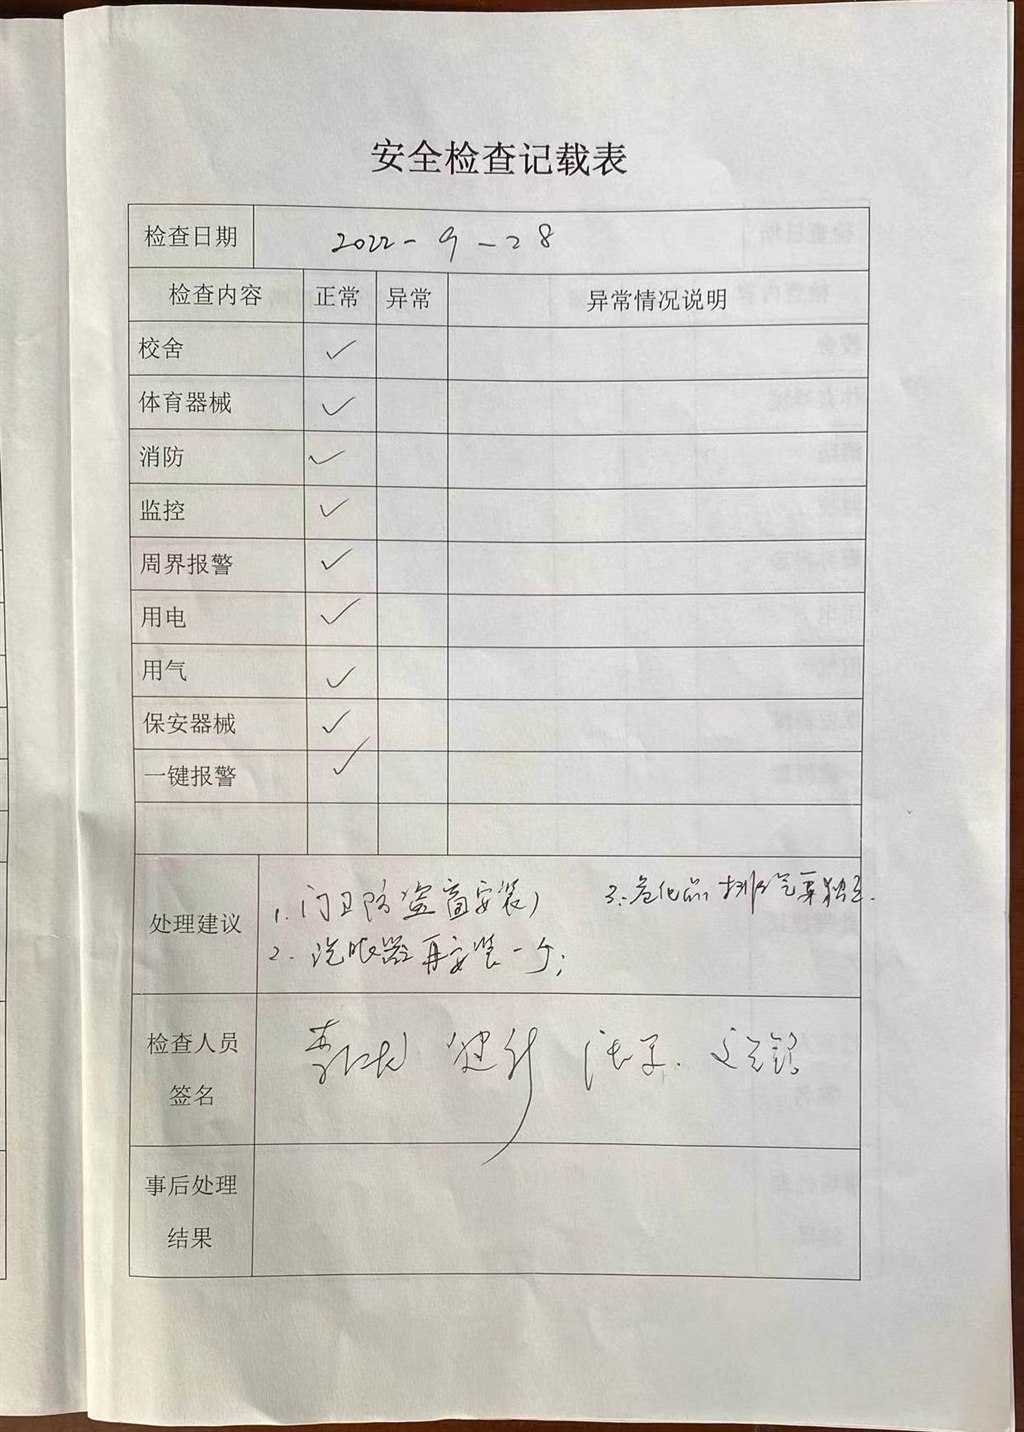 安全检查记载表
检查日期 2022-9-28
检查内容 正常 异常 异常情况说明
校舍 ✓
体育器械 ✓
消防 ✓
监控 ✓
周界报警 ✓
用电 ✓
用气 ✓
保安器械 ✓
一键报警 ✓
处理建议
1. 门卫防盗窗安装;
2. 洗眼器再安装一个;
3. 危化品排气要独立.
检查人员
签名
事后处理
结果